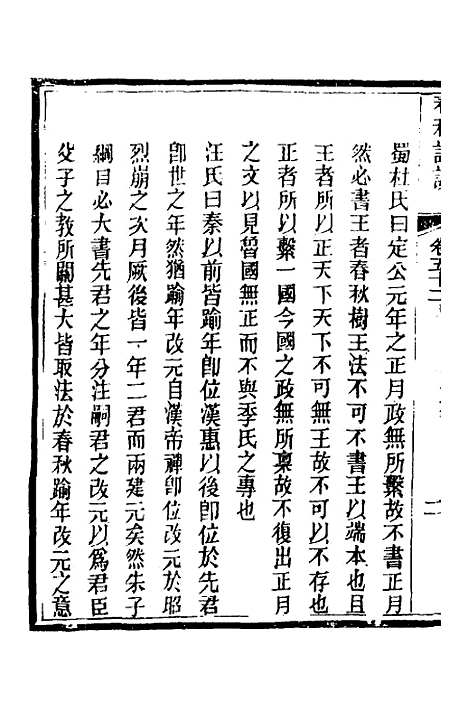 卷五十二
蜀杜氏曰定公元年之正月政無所繫故不書正月
然必書王者春秋樹王法不可不書王以端本也且
王者所以正天下天下不可無王故不可以不存也
正者所以繫一國今國之政無所稟故不復出正月
之文以見魯國無正而不與季氏之專也
汪氏曰秦以前皆踰年卽位漢惠以後卽位於先君
卽世之年然猶踰年改元自漢帝禪卽位改元於昭
烈崩之次月厥後皆一年二君而兩建元矣然朱子
綱目必大書先君之年分注嗣君之改元以爲君臣
父子之教所關甚大皆取法於春秋踰年改元之意